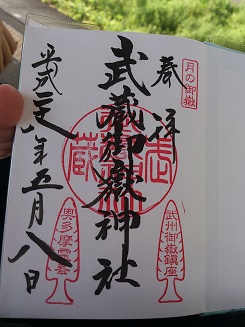 月の御嶽
奉拝
武蔵御嶽神社
平成二十八年五月八日
武州御嶽鎮座
奥多摩